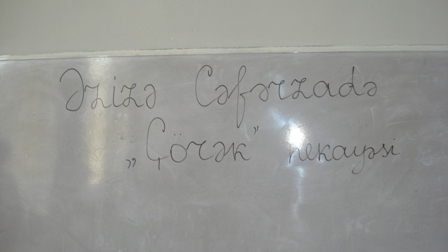 Əzizə Cəfərzadə
„Çörək” hekayəsi